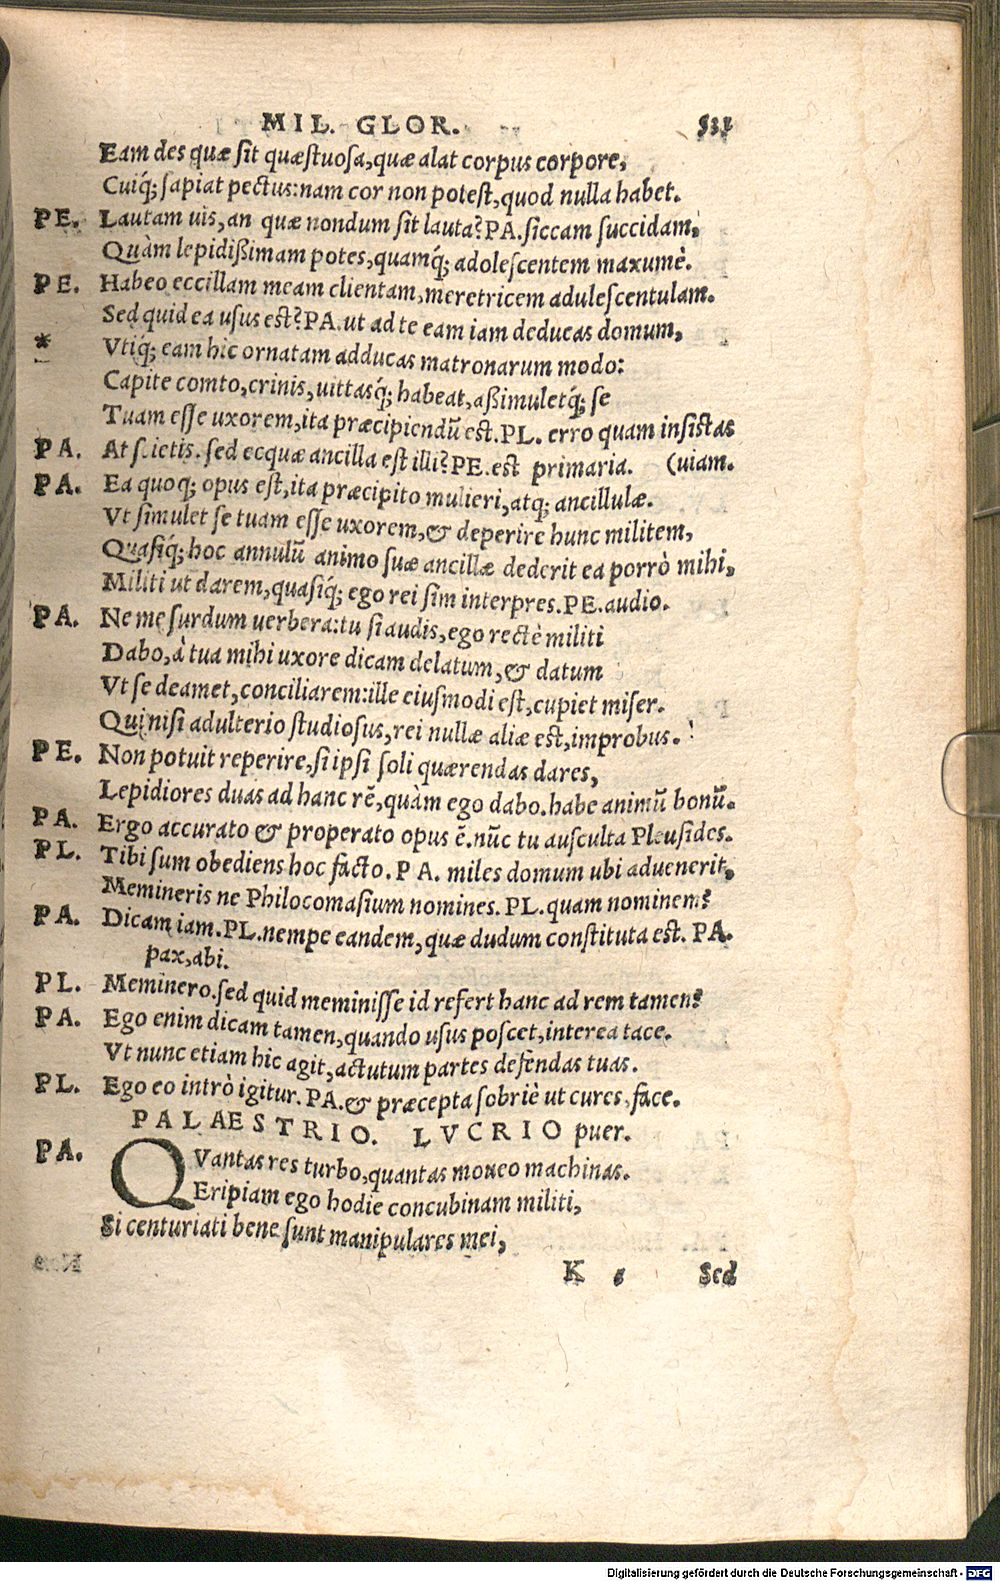 MIL. GLOR. 531
Eam des quæ ſit quæſtuoſa,quæ alat corpus corpore,
Cuiq́; ſapiat pectus:nam cor non poteſt,quod nulla habet.
PE. Lautam uis,an quæ nondum ſit lauta? PA. ſiccam ſuccidam,
Quàm lepidißimam potes,quamq́; adoleſcentem maxumè.
PE. Habeo eccillam meam clientam,meretricem aduleſcentulam.
Sed quid ea uſus eſt? PA. ut ad te eam iam deducas domum,
* Vtiq́; eam hic ornatam adducas matronarum modo:
Capite comto,crinis,uittasq́; habeat,aßimuletq́; ſe
Tuam eſſe uxorem,ita præcipiendũ eſt. PL. erro quam inſiſtas
PA. At ſcietis. ſed ecquæ ancilla eſt illi? PE. eſt primaria. (uiam.
PA. Ea quoq; opus eſt,ita præcipito mulieri,atq; ancillulæ.
Vt ſimulet ſe tuam eſſe uxorem,& deperire hunc militem,
Quaſiq́; hoc annulũ animo ſuæ ancillæ dederit ea porrò mihi,
Militi ut darem,quaſiq́; ego rei ſim interpres. PE. audio.
PA. Ne me ſurdum uerbera:tu ſi audis,ego rectè militi
Dabo,à tua mihi uxore dicam delatum,& datum
Vt ſe deamet,conciliarem:ille eiuſmodi eſt,cupiet miſer.
Qui niſi adulterio ſtudioſus,rei nullæ aliæ eſt,improbus.
PE. Non potuit reperire,ſi ipſi ſoli quærendas dares,
Lepidiores duas ad hanc rẽ,quàm ego dabo.habe animũ bonũ.
PA. Ergo accurato & properato opus ẽ.nũc tu auſculta Pleuſides.
PL. Tibi ſum obediens hoc facto. PA. miles domum ubi aduenerit,
Memineris ne Philocomaſium nomines. PL. quam nominem?
PA. Dicam iam. PL. nempe eandem,quæ dudum conſtituta eſt. PA.
pax,abi.
PL. Meminero.ſed quid meminiſſe id refert hanc ad rem tamen?
PA. Ego enim dicam tamen,quando uſus poſcet,interea tace.
Vt nunc etiam hic agit,actutum partes defendas tuas.
PL. Ego eo intrò igitur. PA. & præcepta ſobriè ut cures,face.
PALAESTRIO. LVCRIO puer.
PA. QVantas res turbo,quantas moueo machinas.
Eripiam ego hodie concubinam militi,
Si centuriati bene ſunt manipulares mei,
K 5 Sed
Digitalisierung gefördert durch die Deutsche Forschungsgemeinschaft - DFG